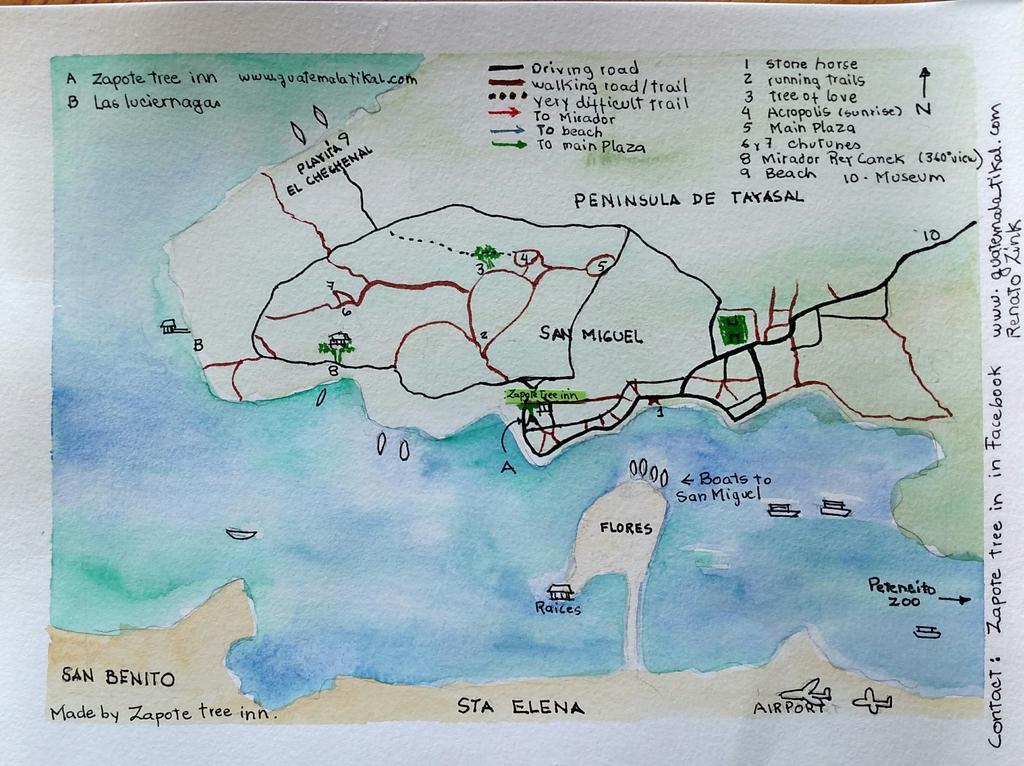 A Zapote tree inn www.guatemalatikal.com
B Las luciernagas
Driving road
walking road/trail
very difficult trail
To Mirador
To beach
To main Plaza
1 stone horse
2 running trails
3 tree of love
4 Acropolis (sunrise)
5 Main Plaza
6 y 7 chutunes
8 Mirador Rey Canek (360° view)
9 Beach 10 - Museum
N
PLAYITA 9
EL CHECHENAL
PENINSULA DE TAYASAL
10
3
4
5
7
6
2
SAN MIGUEL
B
8
Zapote tree inn
A
1
A
← Boats to
San Miguel
FLORES
Raices
Petencito
ZOO
SAN BENITO
Made by Zapote tree inn.
STA ELENA
AIRPORT
Contact: Zapote tree in in Facebook www.guatemalatikal.com
Renato Zink